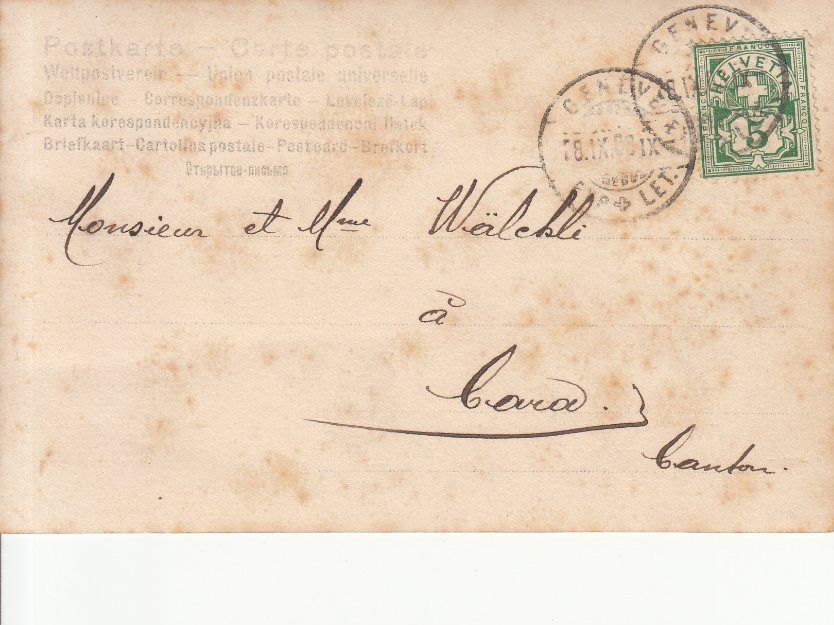 Postkarte – Carte postale
Weltpostverein – Union postale universelle
Dopisnice – Correspondenzkarte – Levelező-Lap
Karta korespondencyjna – Korespondenčni listek
Briefkaart–Cartolina postale–Post card–Brefkort
Открытое письмо
GENEVE
GENEVE
18.IX
EXP. LET.
FRANCO
HELVETIA
5
Monsieur et Mme Wälchli
à
Cara.
Canton.